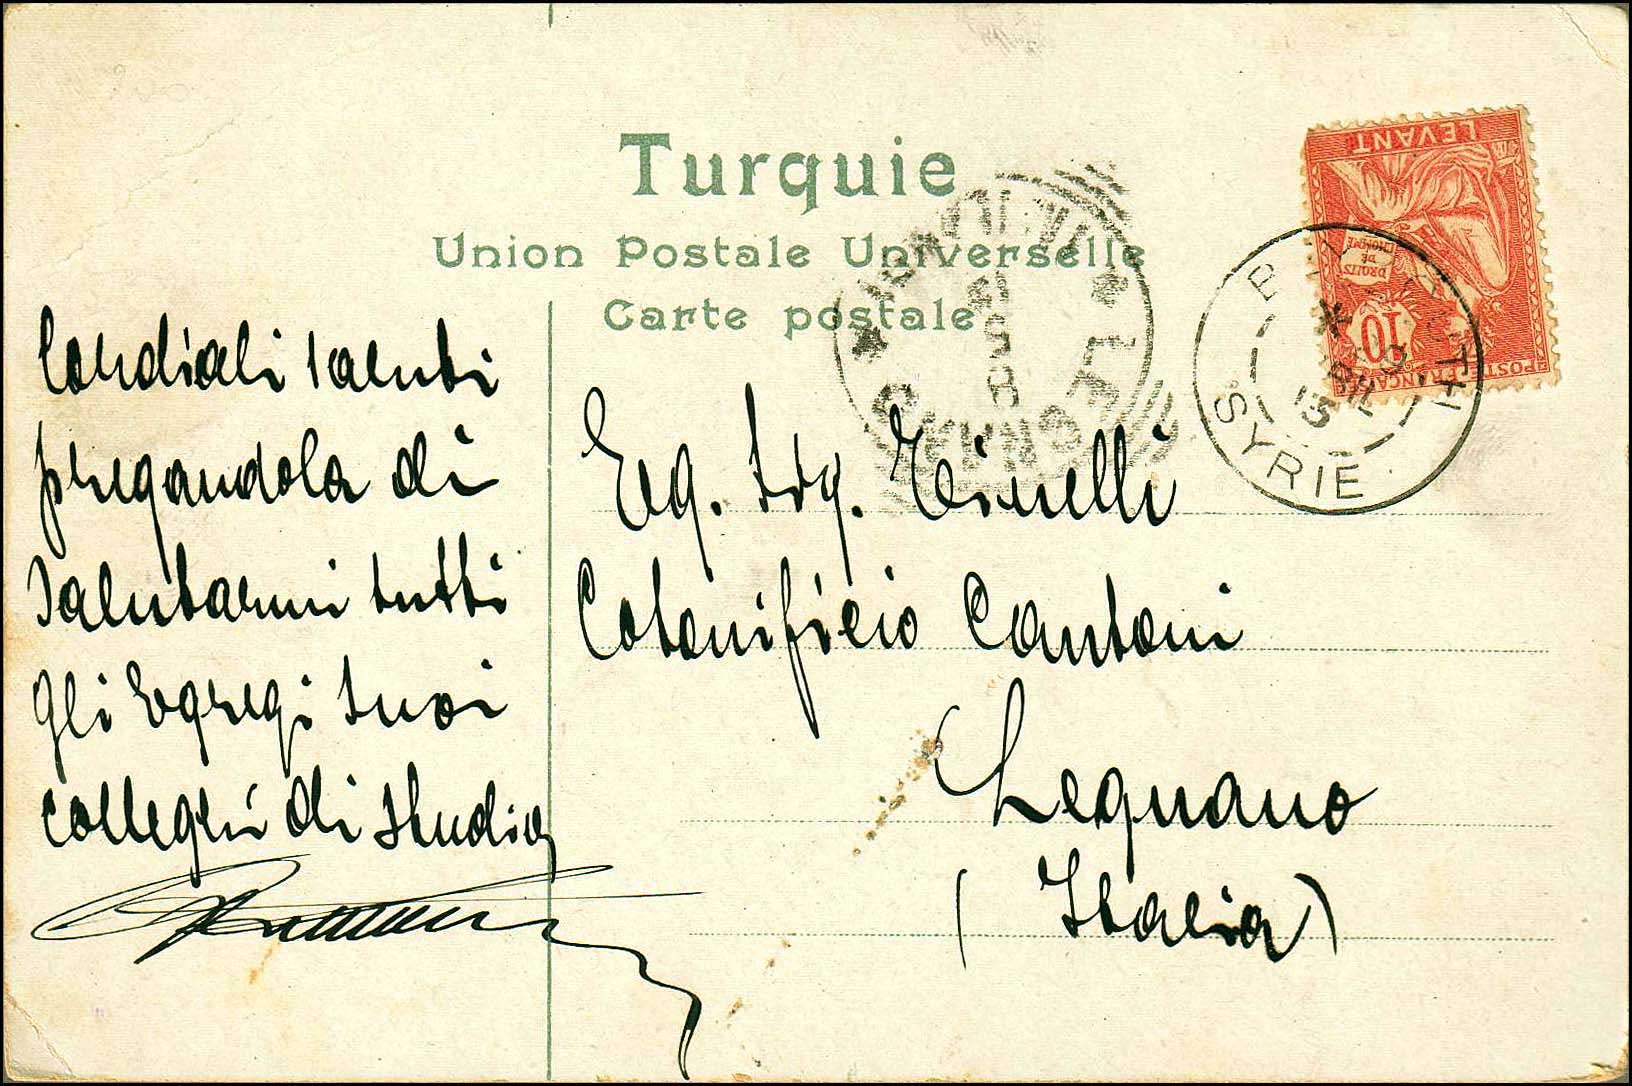 Turquie
Union Postale Universelle
Carte postale
LEVANT
DROITS
DE
10
POSTE FRANÇAISE
BEYROUTH
AVRIL
13
SYRIE
LEGNANO
MILANO
Cordiali saluti
pregandola di
salutarmi tutti
gli Egregi suoi
colleghi di studio
Eg. Sig. Tinelli
Cotonificio Cantoni
Legnano
(Italia)